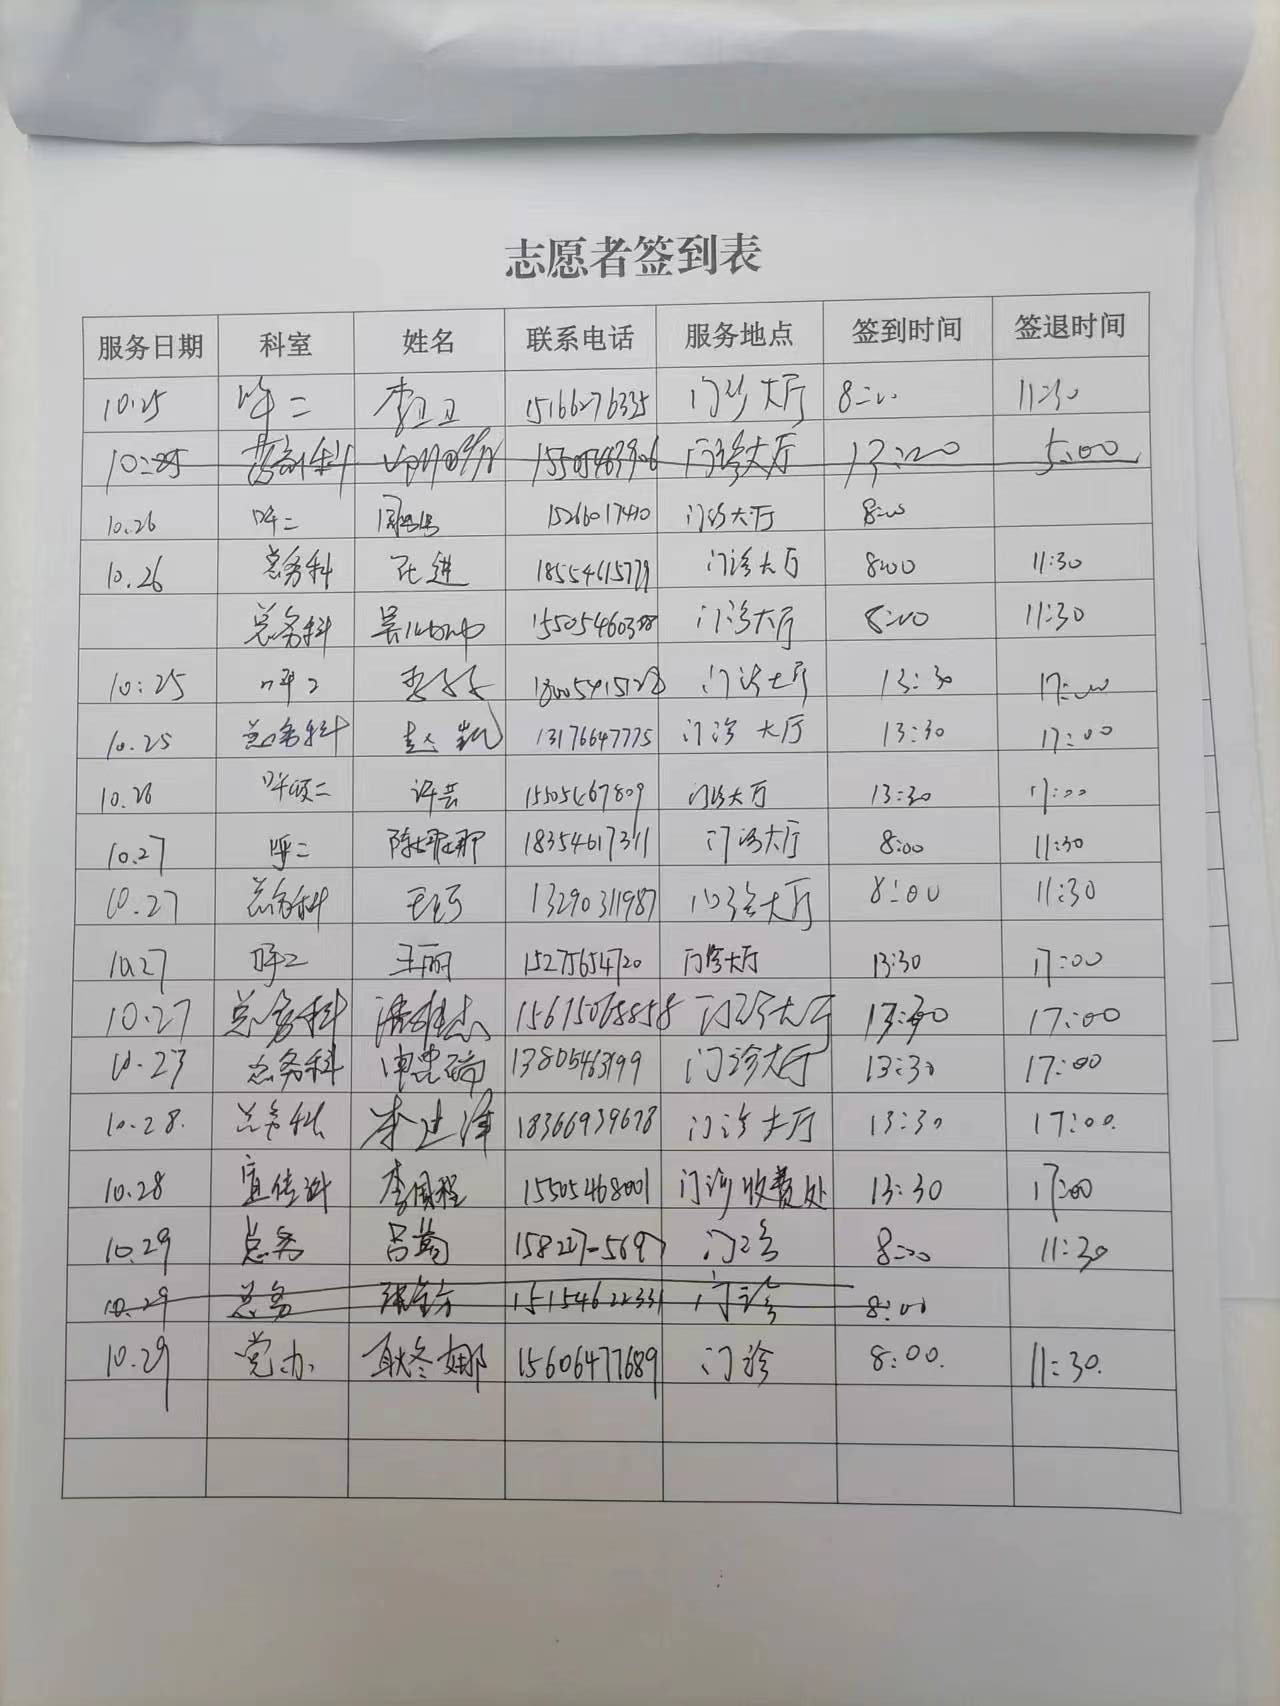 志愿者签到表
服务日期 科室 姓名 联系电话 服务地点 签到时间 签退时间
10.25 呼二 李卫卫 15166276335 门诊大厅 8:00 11:30
10:25 门诊大厅 13:00 5:00
10.26 呼二 15266017410 门诊大厅 8:00
10.26 总务科 张进 18554615779 门诊大厅 8:00 11:30
总务科 门诊大厅 8:00 11:30
10:25 呼二 门诊大厅 13:30 17:00
10.25 总务科 赵凯 13176647775 门诊大厅 13:30 17:00
10.26 呼吸二 许芸 15505467809 门诊大厅 13:30 17:00
10.27 呼二 陈娜娜 18354617311 门诊大厅 8:00 11:30
10.27 总务科 13290311987 门诊大厅 8:00 11:30
10.27 呼二 王丽 15275654720 门诊大厅 13:30 17:00
10.27 总务科 门诊大厅 17:00
总务科 13805463199 门诊大厅 13:30 17:00
10.28. 总务科 李建泽 18366939678 门诊大厅 13:30 17:00.
10.28 宣传科 李国程 15505468001 门诊收费处 13:30 17:00
10.29 总务 吕萄 门诊 8:00 11:30
10.29 总务 15154622331 门诊 8:00
10.29 党办 耿冬娜 15606477689 门诊 8:00. 11:30.